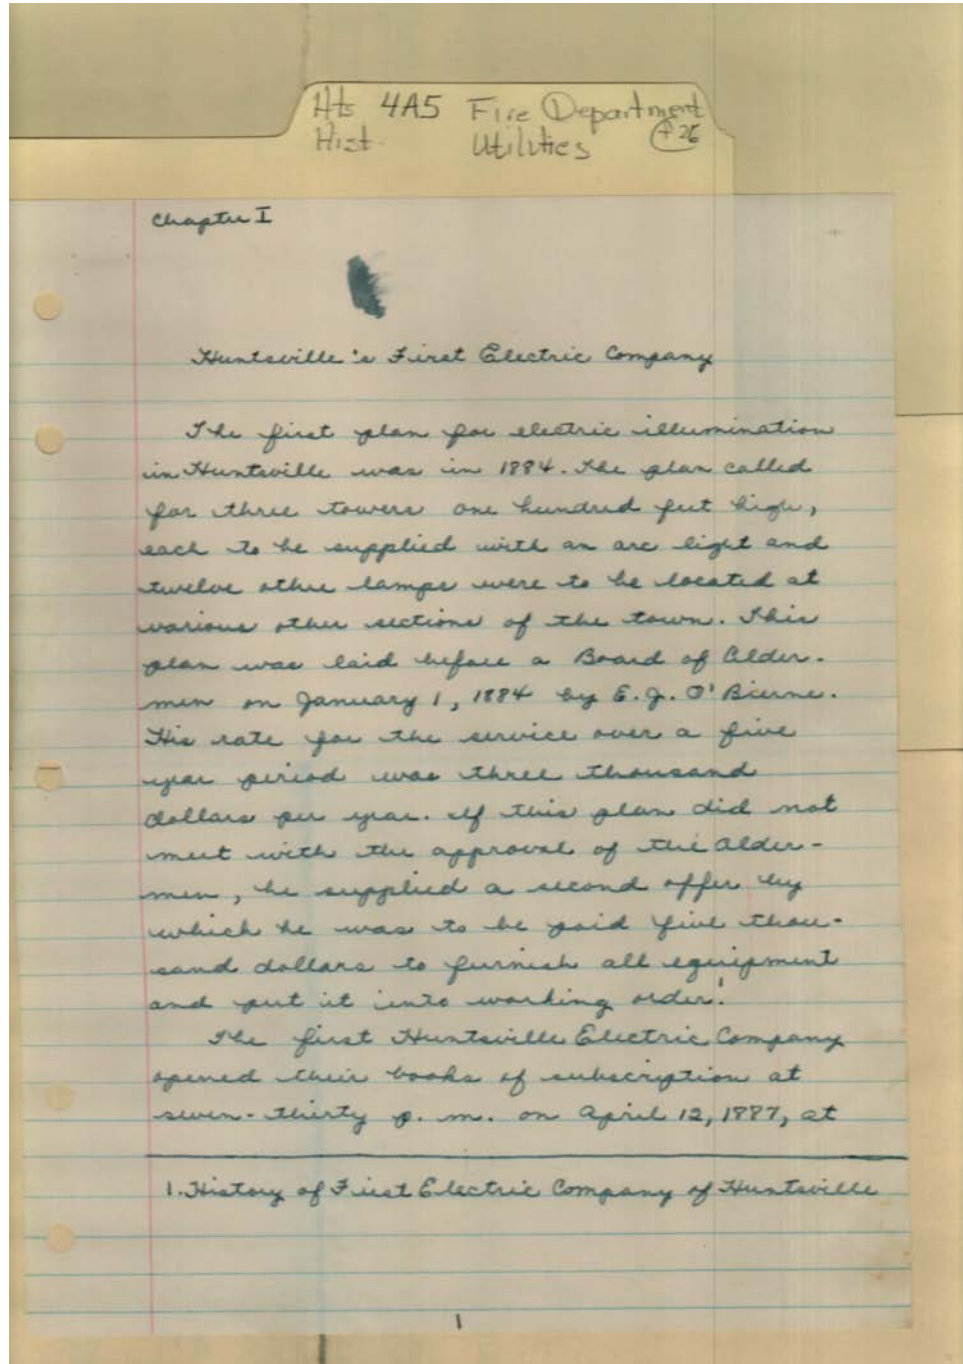 Hts 4A5 Fire Department
Hist. Utilities + 26
Chapter I
Huntsville's First Electric Company
The first plan for electric illumination
in Huntsville was in 1884. The plan called
for three towers one hundred feet high,
each to be supplied with an arc light and
twelve other lamps were to be located at
various other sections of the town. This
plan was laid before a Board of Alder-
men on January 1, 1884 by E. J. O'Bierne.
His rate for the service over a five
year period was three thousand
dollars per year. If this plan did not
meet with the approval of the Alder-
men, he supplied a second offer by
which he was to be paid five thou-
sand dollars to furnish all equipment
and put it into working order.1
The first Huntsville Electric Company
opened their books of subscription at
seven-thirty p. m. on April 12, 1887, at
1. History of First Electric Company of Huntsville
1